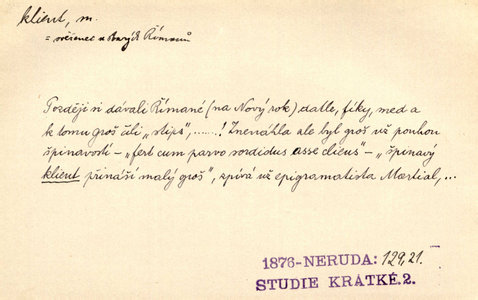 klient, m.
= svěřenec u starých Římanů
Později si dávali Římané (na Nový rok) datle, fíky, med a
k tomu groš čili „stips“, ......! Znenáhla ale byl groš už pouhou
špinavostí – „fert cum parvo sordidus asse cliens“ – „špinavý
klient přináší malý groš“, zpívá už epigramatista Martial, ...
1876-NERUDA: 129,21.
STUDIE KRÁTKÉ.2.